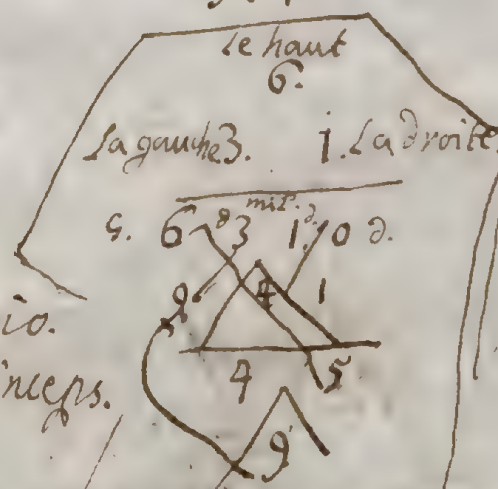 le haut
6.
la gauche 3. 1. La droite.
mil. d.
G. 6 3 1. 0 d.
9 4 1
io.
4 5
inceps.
9